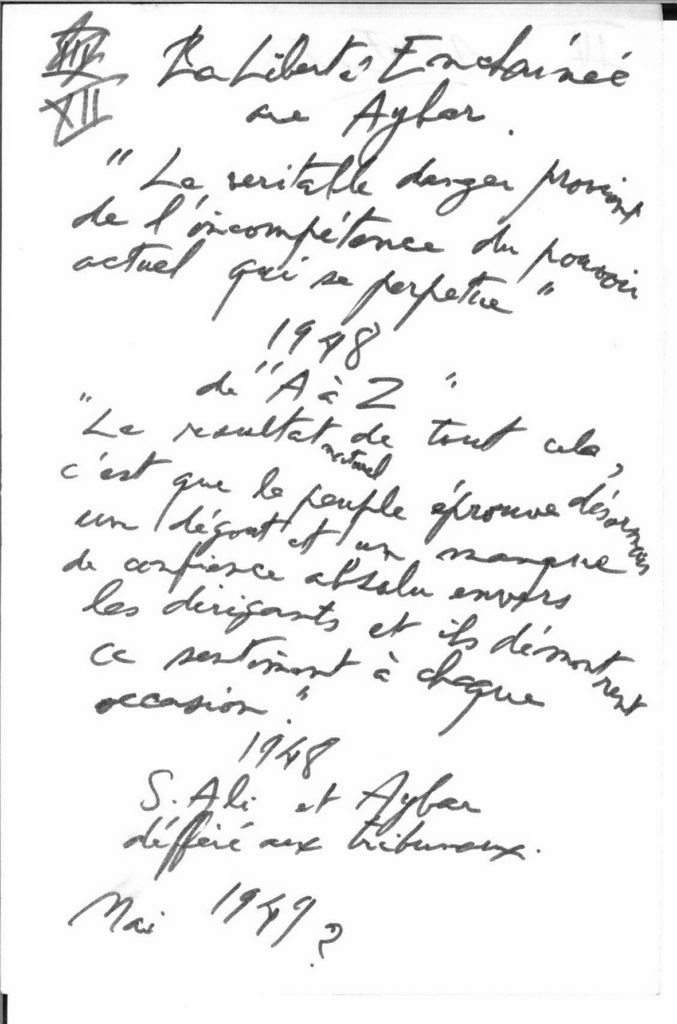 XII La Liberté Enchaînée
ave Aybar.
"Le veritable danger provient
de l'incompétence du pouvoir
actuel qui se perpetue"
1948
de "A à Z"
"Le resultat naturel de tout cela,
c'est que le peuple éprouve désormais
un dégout et un manque
de confience absolu envers
les dirigants et ils démontrent
ce sentiment à chaque
occasion."
1948
S. Ali et Aybar
défféré aux tribunaux.
Mai 1949?